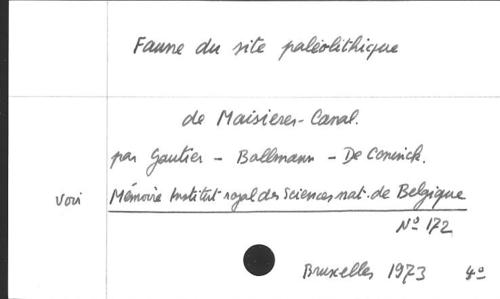 Faune du site paléolithique
de Maisieres-Canal.
par Gautier - Ballmann - De Coninck.
Voir Mémoire Institut royal des Sciences nat. de Belgique
Nº 172
Bruxelles 1973 4º